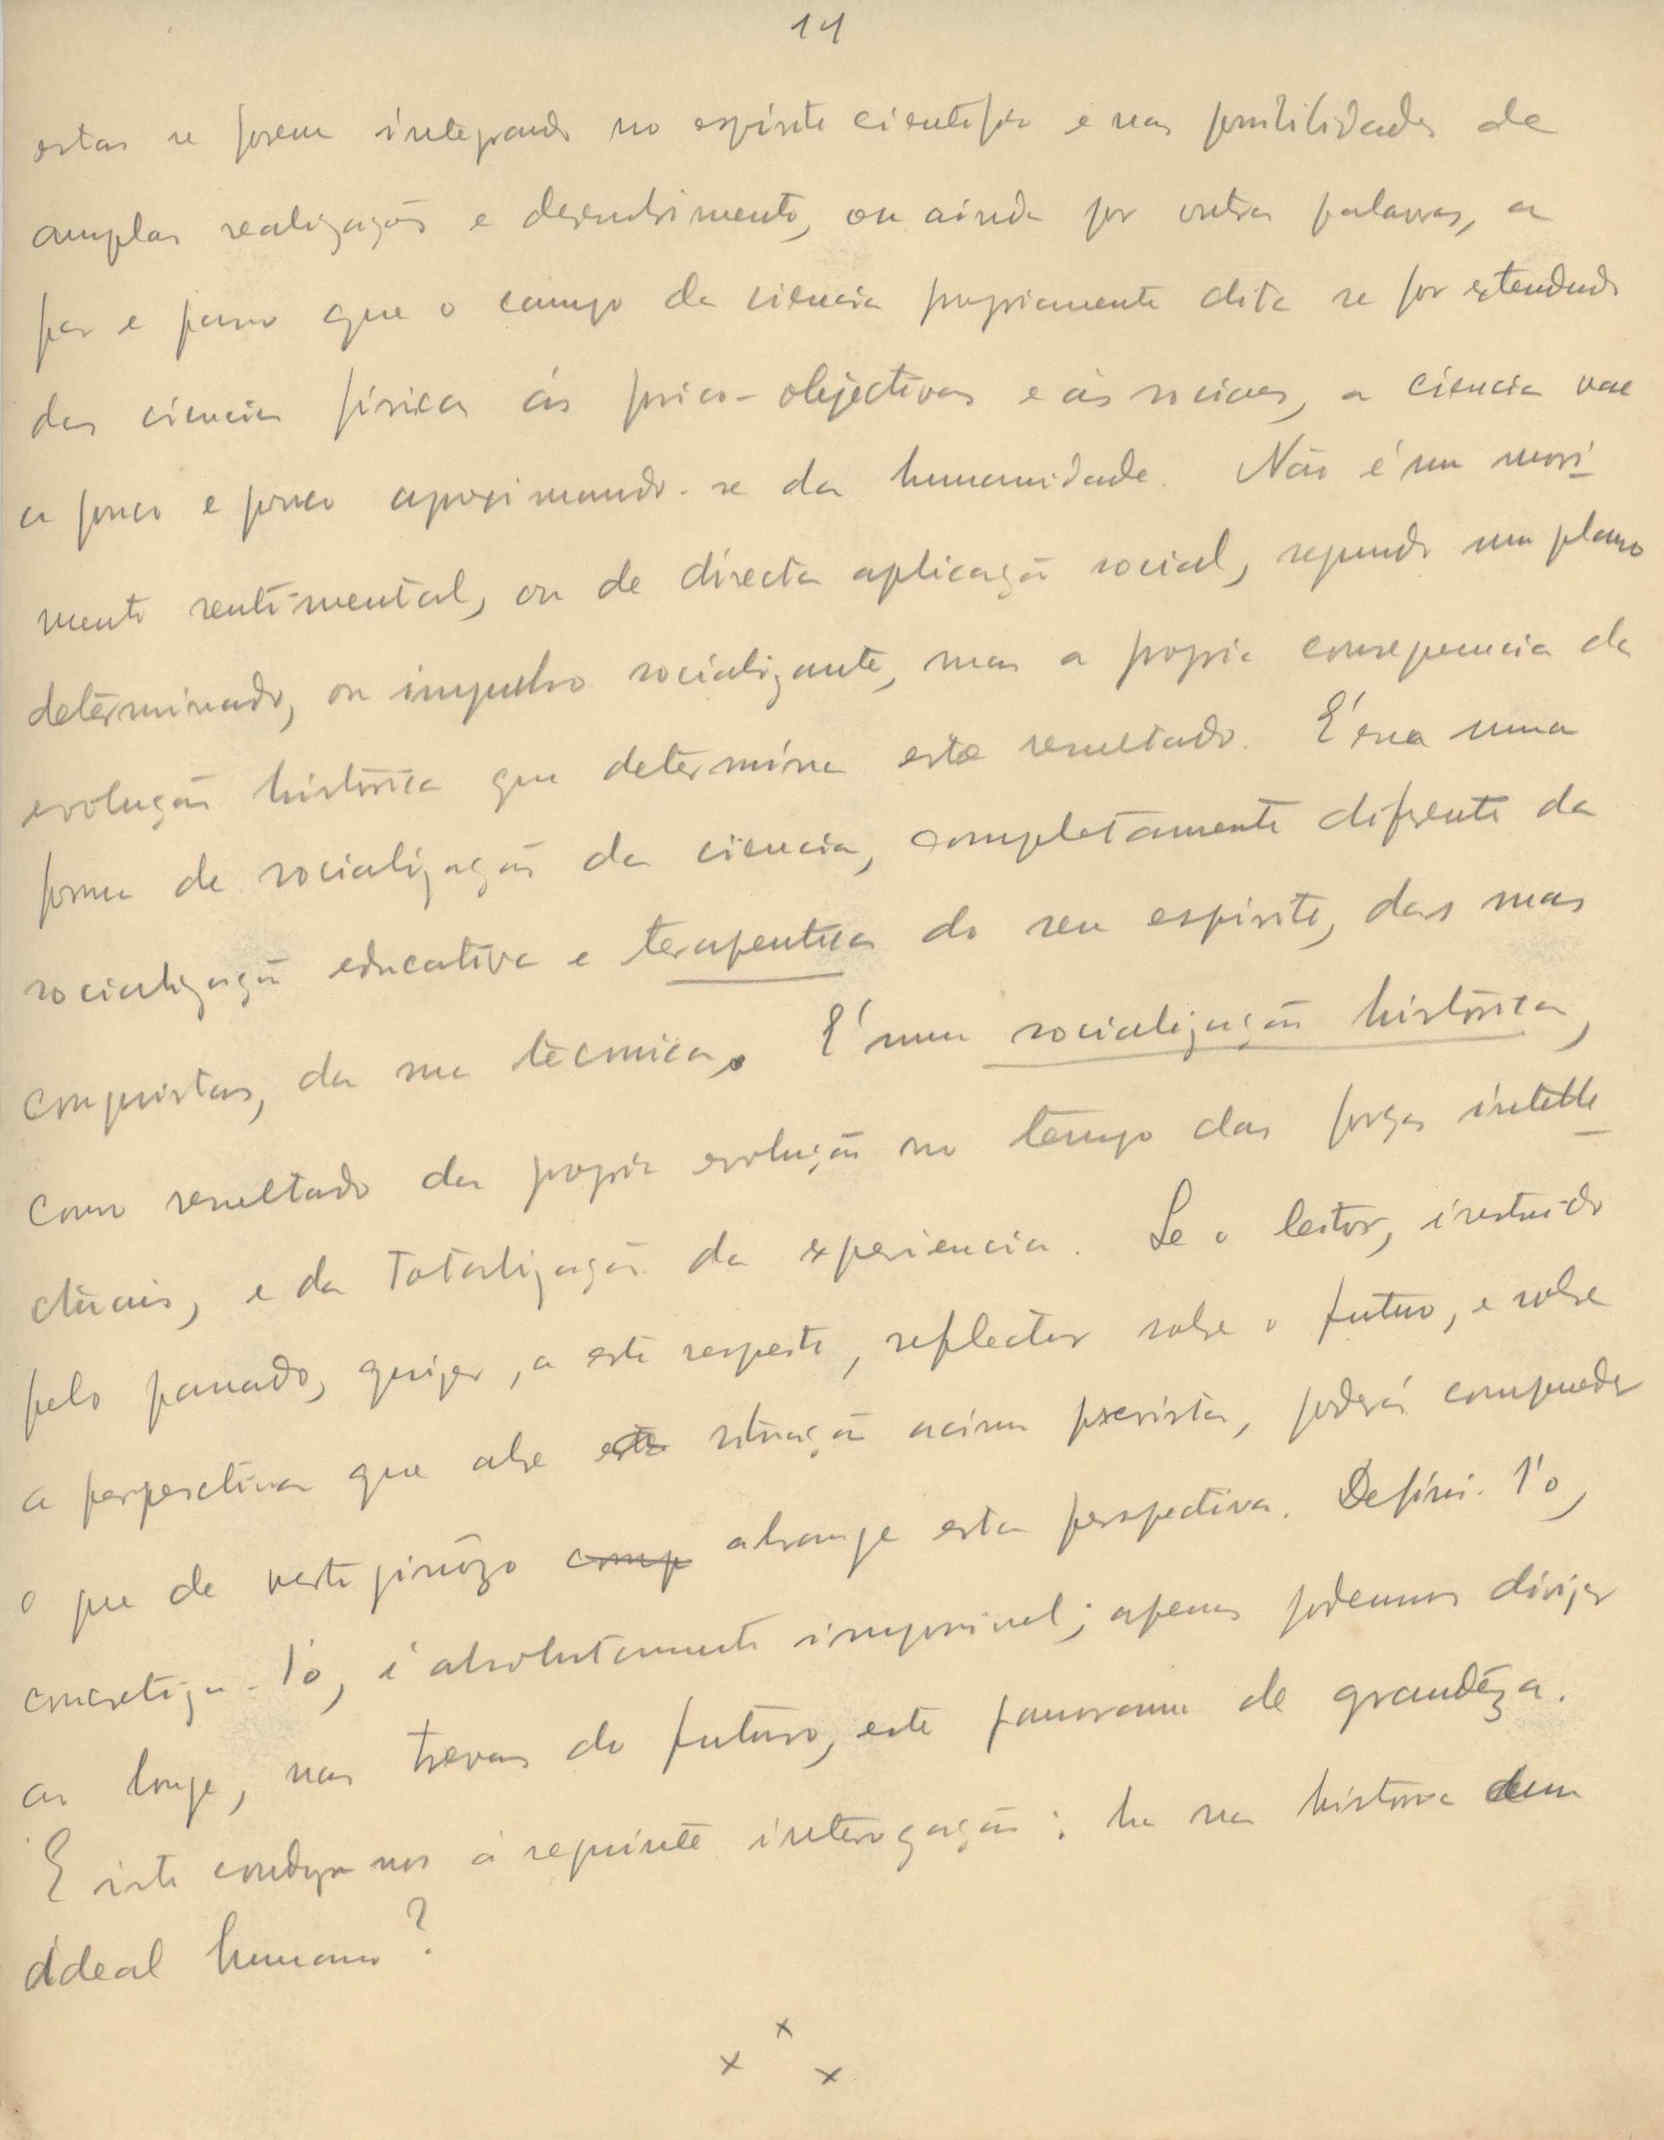 14
estas se forem integrando no espirito cientifico e nas possibilidades de
amplas realizações e desenvolvimento, ou ainda por outras palavras, a
par e passo que o campo da ciencia propriamente dita se for estendendo
das ciencias fisicas ás psico-objectivas e ás sociaes, a ciencia vae
a pouco e pouco aproximando-se da humanidade. Não é um movi
mento sentimental, ou de directa aplicação social, segundo um plano
determinado, ou impulso socializante, mas a propria consequencia da
evolução histórica que determina este resultado. É essa uma
forma de socialização da ciencia, completamente diferente da
socialização educativa e terapeutica do seu espirito, das suas
conquistas, da sua técnica. É uma socialização histórica,
como resultado da propria evolução no tempo das forças intelle
ctuais, e da totalização da experiencia. Se o leitor, instruido
pelo passado, quizer, a este respeito, reflectir sobre o futuro, e sobre
a perspectiva que abre esta situação acima prevista, poderá compreender
o que de vertiginôzo comp abrange esta perspectiva. Defini-l'o,
concretiza-l'o, é absolutamente impossivel; apenas podemos divizar
ao longe, nas trevas do futuro, este panorama de grandêza.
E isto conduz-nos á seguinte interrogação: ha na história um
ideal humano?
x
x x